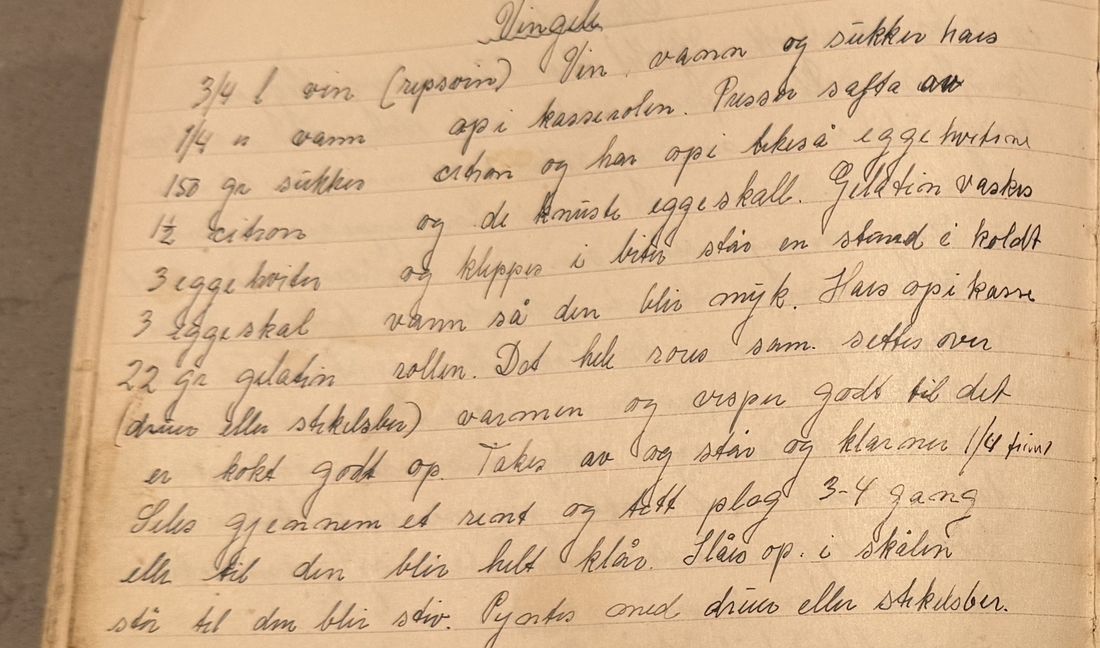 Vingele
3/4 l vin (ripsvin) Vin, vann og sukker haes
1/4 " vann op i kasserolen. Presser safta av
150 gr sukker citron og har opi likeså eggehvitene
1½ citron og de knuste eggeskall. Gelatin vaskes
3 eggehviter og klippes i biter står en stund i koldt
3 eggeskal vann så den blir myk. Haes opi kasse
22 gr gelatin rollen. Det hele røres sam. settes over
(druer eller stikelsber) varmen og visper godt til det
er kokt godt op. Takes av og står og klarner 1/4 time
Siles gjennem et rent og tett plag 3-4 gang
eller til den blir helt klår. Slåes op. i skålen
står til den blir stiv. Pyntes med druer eller stikelsber.